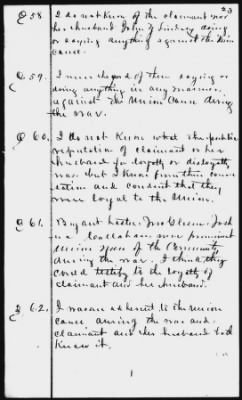 23
Q 58. I do not know of the claimant nor
her husband John F. Lindsey doing
or saying anything against the Union
cause.
Q 59. I never heard of them saying or
doing anything in any manner
against the Union Cause during
the war.
Q 60. I do not know what the public
reputation of claimant or her
husband for loyalty or disloyalty
was but I know from their conver-
sation and conduct that they
were loyal to the Union.
Q 61. Bryant Lester, Jno Gleson, Josh
ua Coollahan were prominent
Union men of the Community
during the war. I think they
could testify to the loyalty of
claimant and her husband.
Q 62. I was an adherent to the Union
cause during the war and
claimant and her husband both
knew it.
1